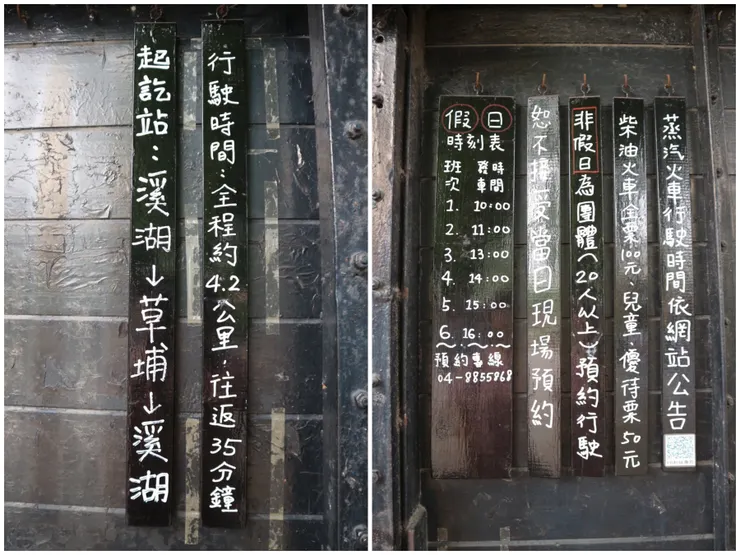 起訖站：溪湖→草埔→溪湖
行駛時間：全程約4.2公里，往返35分鐘
假日
時刻表
班次 發車時間
1. 10:00
2. 11:00
3. 13:00
4. 14:00
5. 15:00
6. 16:00
預約專線
04-8855868
恕不接受當日現場預約
非假日為團體(20人以上)預約行駛
柴油火車全票100元、兒童、優待票50元
蒸汽火車行駛時間依網站公告